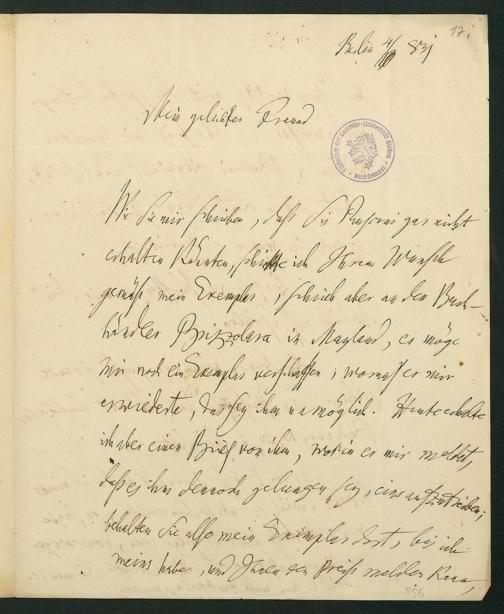 17.
Berlin 4/10 831
Mein geliebter Freund
Wie Sie mir schrieben, daß Sie gar nicht
erhalten könnten, schickte ich Ihrem Wunsche
gemäß mein Exemplar, schrieb aber an den Buch-
händler Brizzolara in Mayland, er möge
mir noch ein Exemplar verschaffen; worauf er mir
erwiederte, das sey ihm unmöglich. Heute erhalte
ich aber einen Brief von ihm, worin er mir meldet,
daß es ihm dennoch gelungen sey, eins aufzutreiben;
behalten Sie also mein Exemplar dort, bis ich
meins habe, und Ihnen den Preiß melden kann,
856